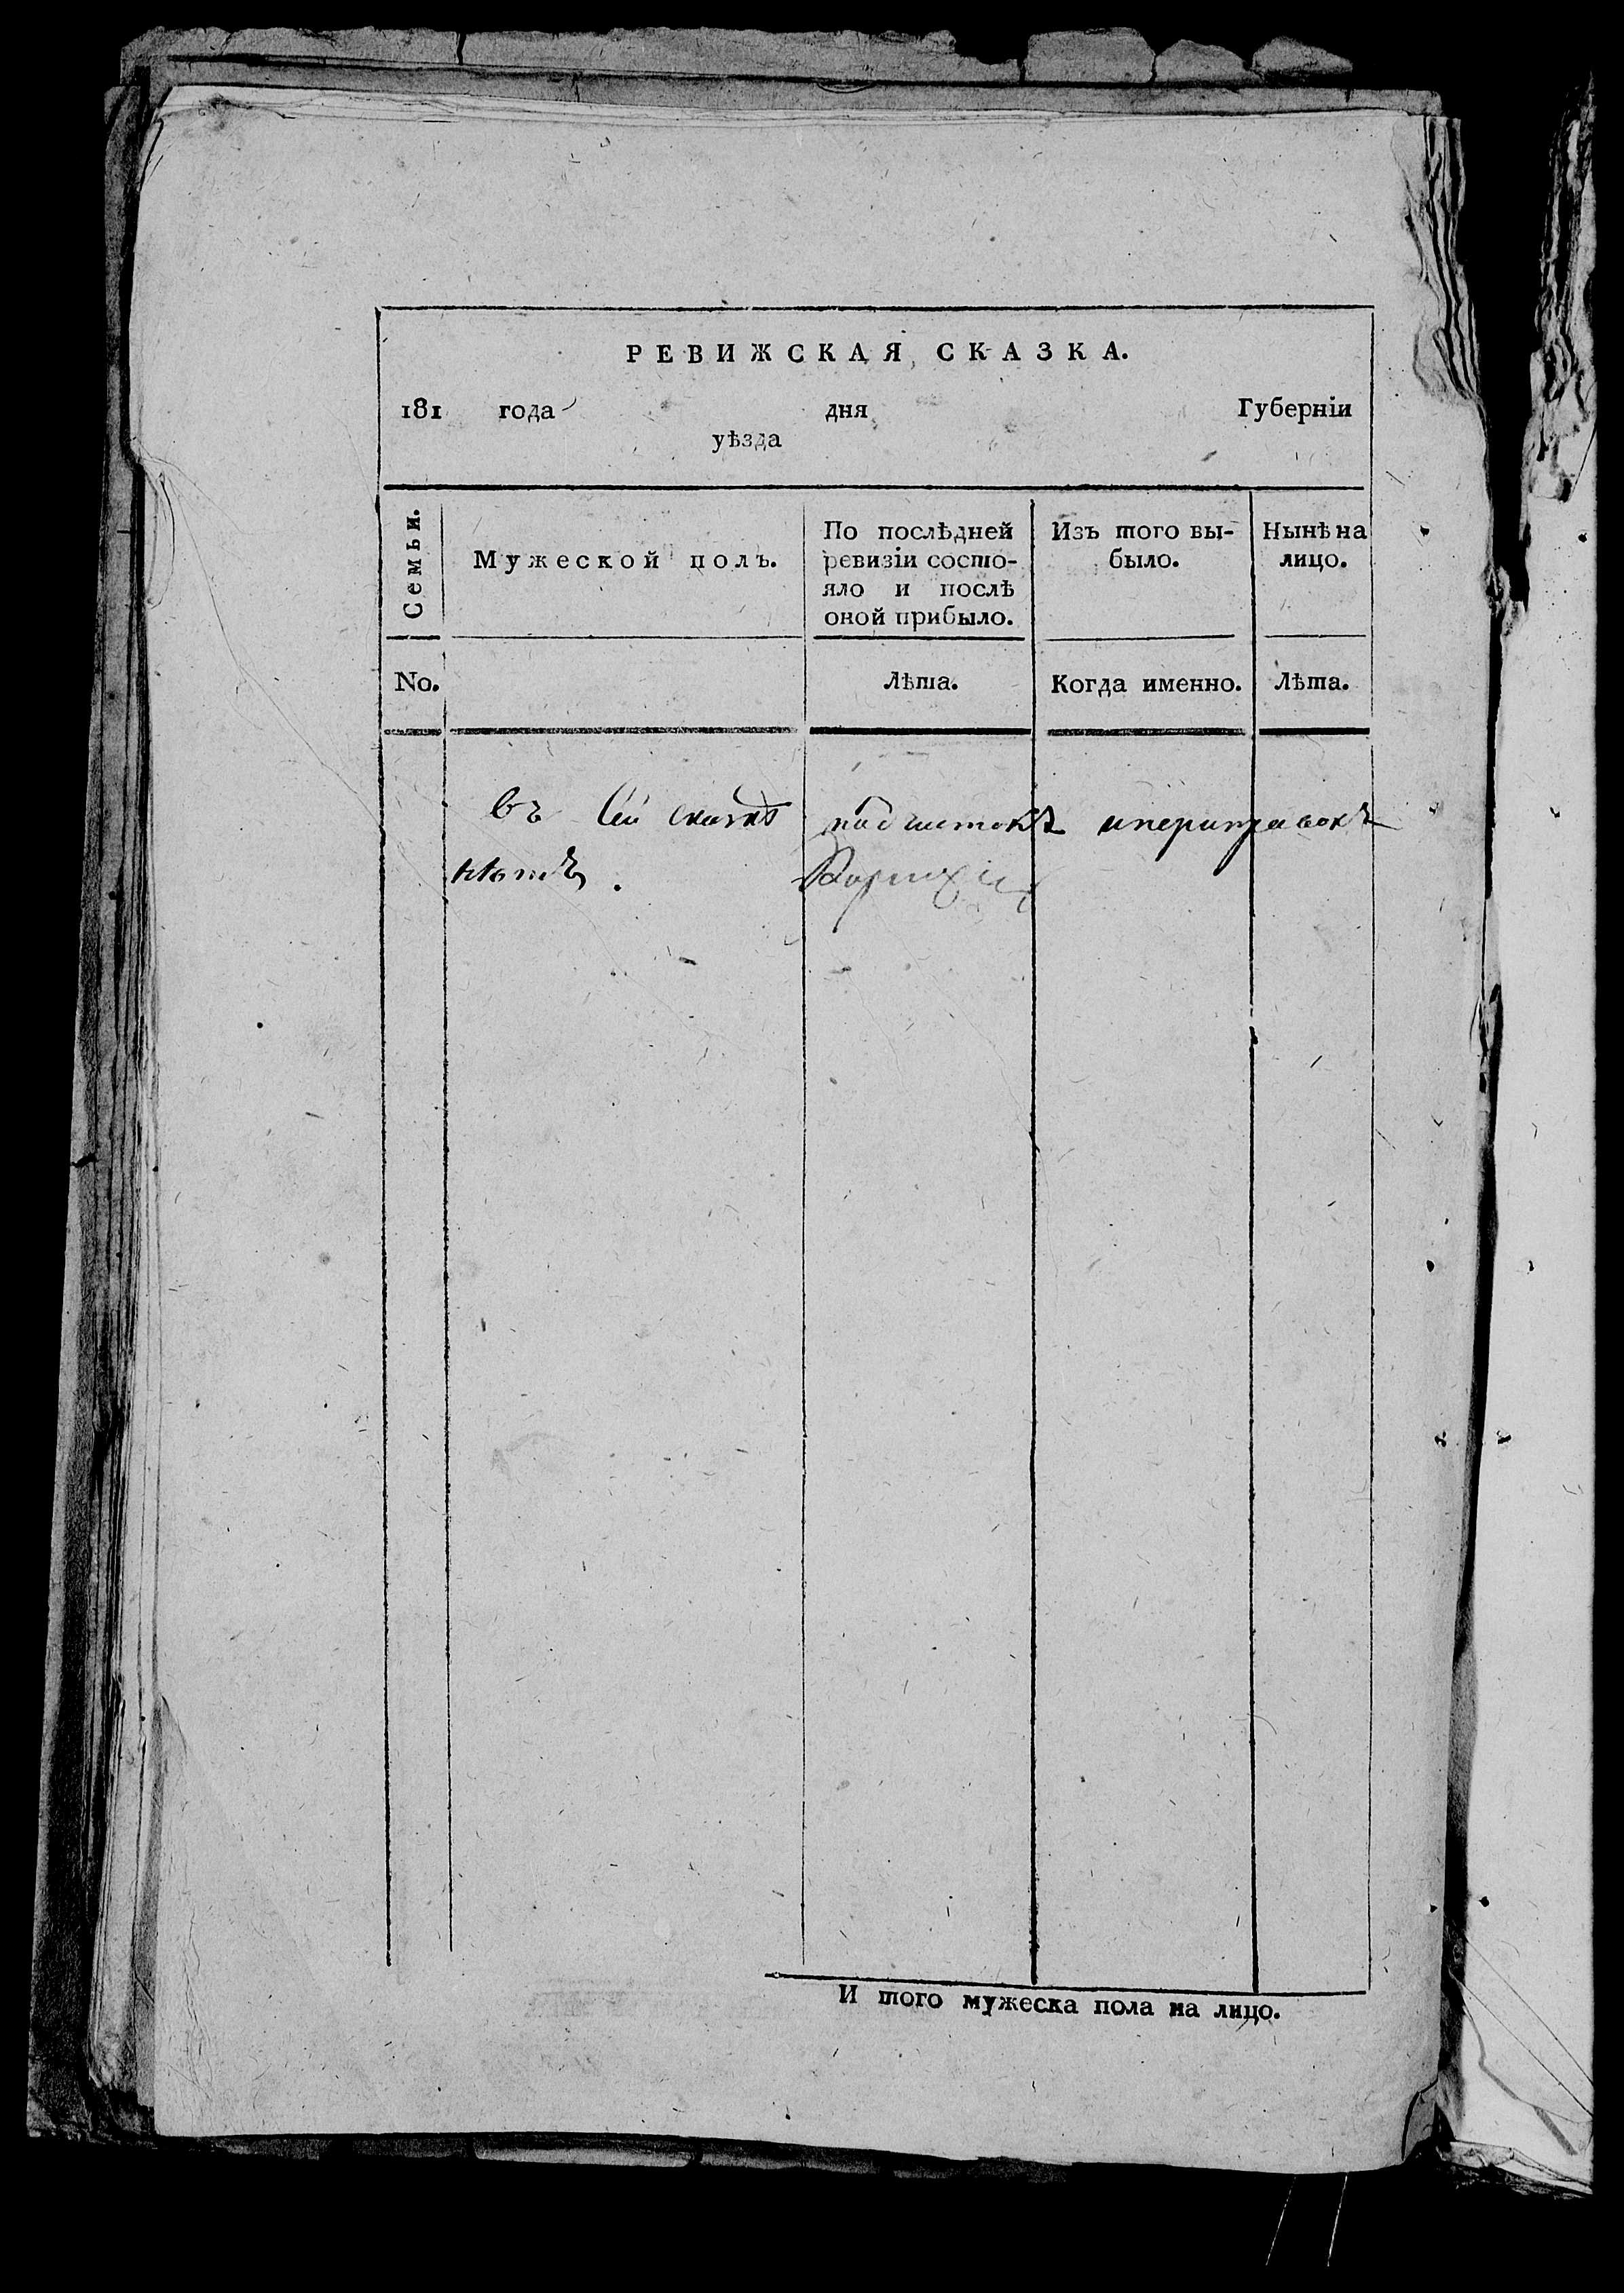 РЕВИЖСКАЯ СКАЗКА.
181 года дня Губерніи
уѣзда
Семьи.
Мужеской полъ.
По послѣдней
ревизіи состо-
яло и послѣ
оной прибыло.
Изъ того вы-
было.
Нынѣ на
лицо.
No.
Лѣта.
Когда именно.
Лѣта.
Въ сей сказкѣ подчистокъ ипериправокъ
нѣтъ.
И того мужеска пола на лицо.